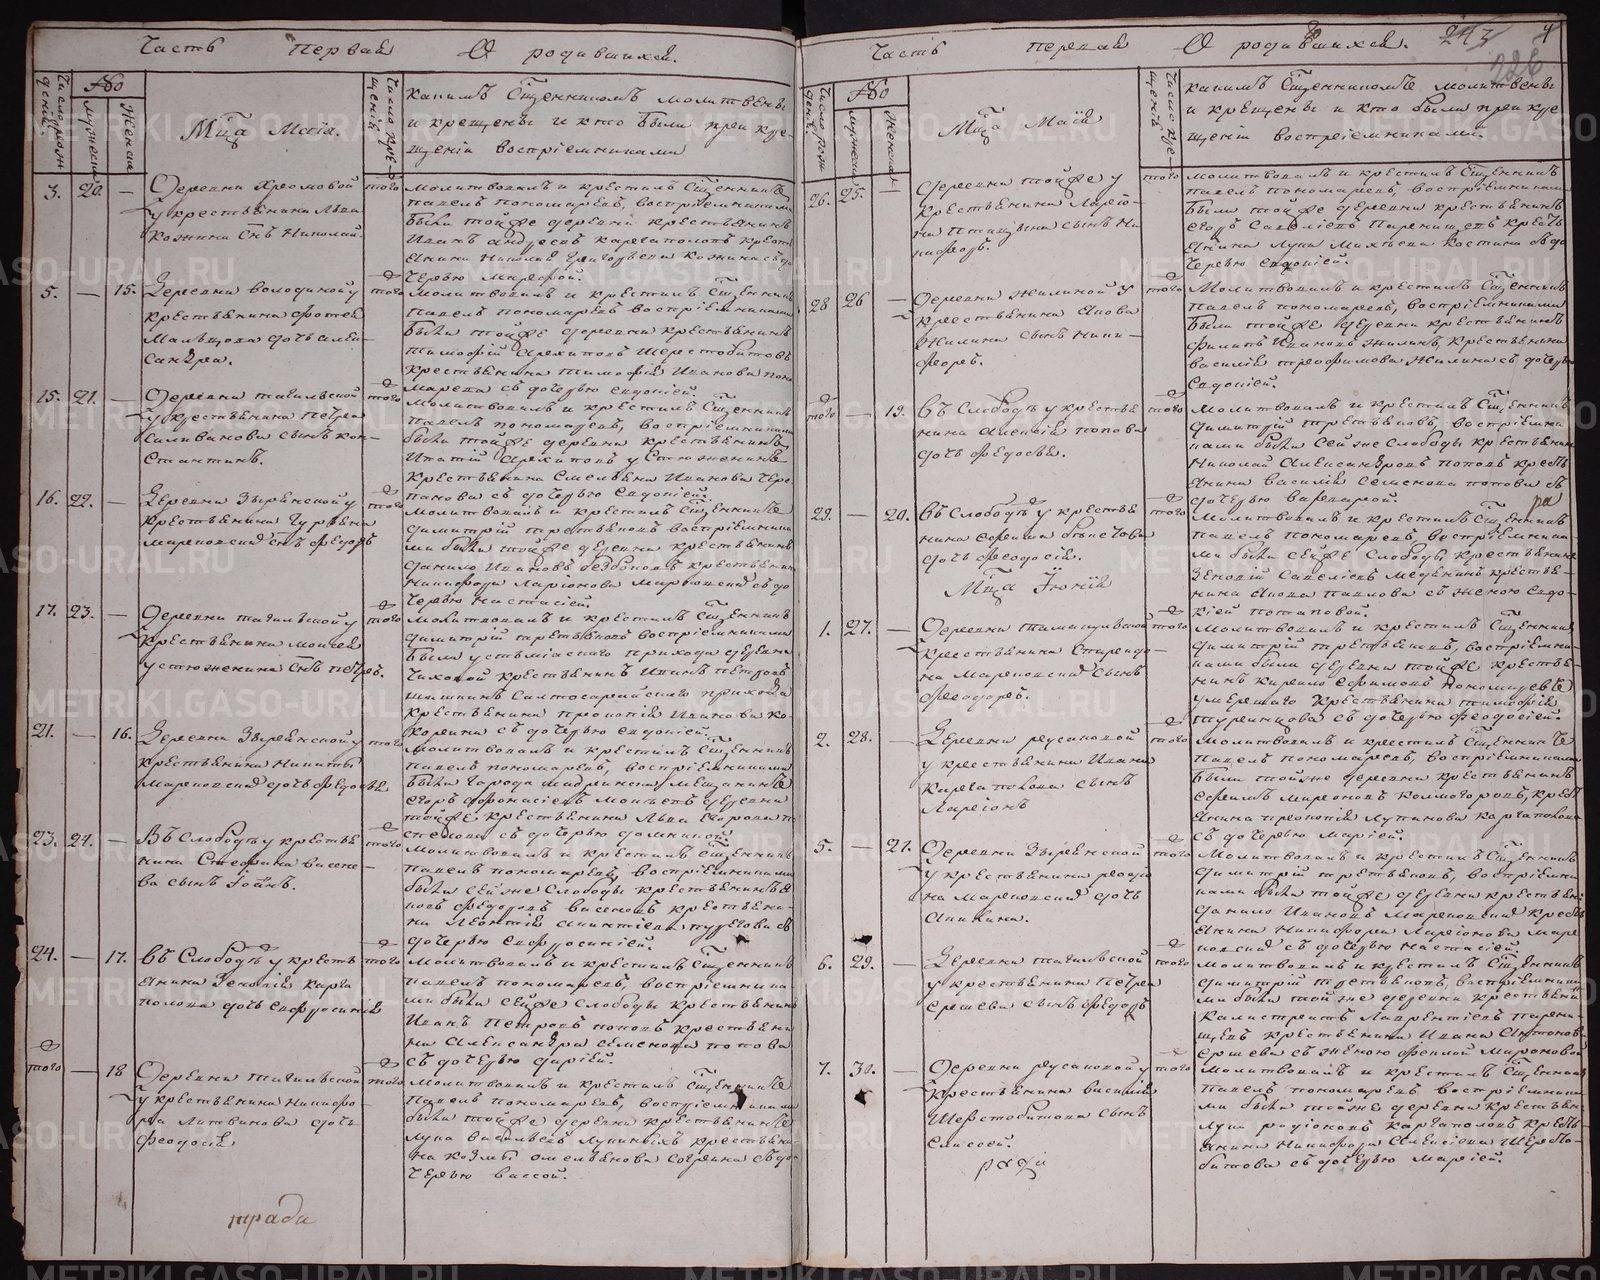 Часть первая О родившихся.
Число рож
дений
№
мужеска
женска
Мца Маiа.
Число кре-
щенiй
каким Священником молитвены
и крещены и кто были при кре
щенiи восприемниками
3. 20. —
Деревни Хромовой
у крестьянина Льва
Кожина Сынъ Николай.
того
молитвовалъ и крестилъ Священникъ
Павелъ пономаревъ, восприемниками
были тойже деревни крестьянинъ
Иванъ Андреевъ Каргаполовъ крестъ
янина Николая Григорьева Кожина съ до
черью Марфой.
5. — 15.
Деревни володиной у
крестьянина Фотея
Мальцова дочь Алек-
сандра.
того
молитвовалъ и крестилъ Священникъ
Павелъ пономаревъ восприемниками
были тойже деревни крестьянинъ
Тимофей Архиповъ Шерстобитовъ
крестьянина Тимофея Иванова поно
марева съ дочерью Евдокiей.
15. 21. —
Деревни тагильской
у крестьянина Петра
Саливанова сынъ Кон-
стантинъ.
того
молитвовалъ и крестилъ Священникъ
Павелъ пономаревъ, восприемниками
были тойже деревни крестьянинъ
Игнатiй Архиповъ Устюженинъ
крестьянина Савельева Иванова Чере
панова съ дочерью Евдокiей.
16. 22. —
Деревни Зырянской у
крестьянина Гурьяна
Мареновских сынъ Федоръ
того
молитвовалъ и крестилъ Священникъ
Димитрiй третьяковъ восприемника
ми были тойже деревни крестьянинъ
Данило Ивановъ крестьянина
Никифора Ларiонова съ до
черью Настасiей.
17. 23. —
Деревни тагильской у
крестьянина Моисея
устюженина Сынъ петръ.
того
молитвовалъ и крестилъ Священникъ
Димитрiй третьяковъ восприемниками
были прихода деревни
крестьянинъ Иванъ петровъ
прихода
крестьянина прокопiя Иванова Ко-
корина съ дочерью Евдокiей.
21. — 16.
Деревни Зырянской у
крестьянина Никиты
Мареновских дочь Федосья
того
молитвовалъ и крестилъ Священникъ
Павелъ пономаревъ, восприемниками
были города Шадринска Мещанинъ
Егоръ Афонасiевъ деревни
тойже крестьянина Льва
съ дочерью домникой.
23. 24. —
Въ Слободе у крестья
нина Стефана Васене-
ва сынъ Iоанъ.
того
молитвовалъ и крестилъ Священникъ
Павелъ пономаревъ, восприемниками
были сейже Слободы крестьянинъ
Федоровъ Васеневъ крестьяни-
на Леонтiя съ
дочерью Евфросинiей.
24. — 17.
Въ Слободе у кресть
янина Зеновiя Карга
полова дочь Евфросинiя
того
молитвовалъ и крестилъ Священникъ
Павелъ пономаревъ, восприемника
ми были сейже Слободы крестьянинъ
Иванъ Петровъ поповъ крестьяни
на Александра Семенова попова
съ дочерью дарiей.
того — 18
Деревни тагильской
у крестьянина Никифо-
ра Литвинова дочь
Феодосiя
того
молитвовалъ и крестилъ Священникъ
Павелъ пономаревъ, восприемниками
были тойже деревни крестьянинъ
Лупа Васильевъ крестьяни
на Козмы Омельянова съ до
черью Вассой.
тради
Часть первая О родившихся.
243 4
226
Число рож
дений
№
мужеска
женска
Мца Маiя
Число кре-
щенiй
каким Священником молитвены
и крещены и кто были при кре
щенiи восприемниками.
26. 25. —
Деревни тойже у
крестьянина Ларiо-
на Птицына сынъ Ни
кифоръ.
того
молитвовалъ и крестилъ Священникъ
Павелъ пономаревъ, восприемниками
были тойже деревни крестьянинъ
Егоръ Савелiевъ Паренщевъ кресть
янина Лупа Михеева Костина съ до
черью Евдокiей.
28 26 —
Деревни Жилиной у
крестьянина Якова
Жилина сынъ Ники-
форъ.
того
молитвовалъ и крестилъ Священникъ
Павелъ пономаревъ, восприемниками
были тойже деревни крестьянинъ
Филипъ Ивановъ Жилинъ, крестьянина
Василiя трофимова Жилина съ дочерью
Евдокiей.
того — 19.
Въ Слободе у крестья
нина Алексiя попова
дочь Федосья.
того
молитвовалъ и крестилъ Священникъ
Димитрiй третьяковъ, восприемни
ками были Сейже Слободы крестьянинъ
Николай Александровъ поповъ кресть
янина Василiя Семенова попова съ
дочерью Варварой.
ра
29. — 20.
Въ Слободе у крестья
нина Ефима
дочь Феодосiя.
того
молитвовалъ и крестилъ Священникъ
Павелъ пономаревъ, восприемника-
ми были сейже Слободы крестьянинъ
Зеновiй Савелiевъ крестья-
нина Якова Павлова съ женою Евдо-
кiей потаповой.
Мца Iюнiя
1. 27. —
Деревни Тамакульской
крестьянина Спиридо-
на Мареновских Сынъ
Феодоръ.
того
молитвовалъ и крестилъ Священникъ
Димитрiй третьяковъ, восприемни-
ками были деревни тойже крестья-
нинъ Кирило Ефимовъ
умершаго крестьянина тимофея
туринцова съ дочерью Феодосiей.
2. 28. —
Деревни русаковой
у крестьянина Ивана
Каргаполова сынъ
Ларiонъ
того
молитвовалъ и крестилъ Священникъ
Павелъ пономаревъ, восприемниками
были тойже деревни крестьянинъ
Ефимъ Мироновъ Колмогоровъ, кресть
янина прокопiя Каргаполова
съ дочерью Марiей.
5. — 21.
Деревни Зырянской
у крестьянина родiо
на Мареновских дочь
Акилина.
того
молитвовалъ и крестилъ Священникъ
Димитрiй третьяковъ, восприемни
ками были тойже деревни крестьянинъ
Данило Ивановъ Мареновских кресть
янина Никифора Ларiонова Маре
новских съ дочерью Настасiей.
6. 29. —
Деревни тагильской
у крестьянина Петра
Ершева сынъ Федоръ
того
молитвовалъ и крестилъ Священникъ
Димитрiй третьяковъ, восприемника
ми были тойже деревни крестьянинъ
Калистратъ Лаврентiевъ парен-
щевъ крестьянина Ивана Антонова
Ершева съ женою Феклой Мироновой
7. 30. —
Деревни русаковой у
крестьянина Василiя
Шерстобитова сынъ
Елисей.
того
молитвовалъ и крестилъ Священникъ
Павелъ пономаревъ восприемника
ми были тойже деревни крестьян
Лука родiоновъ Каргаполовъ кресть-
янина Никифора Алексiева Шерсто-
битова съ дочерью Марiей.
METRIKI.GASO-URAL.RU